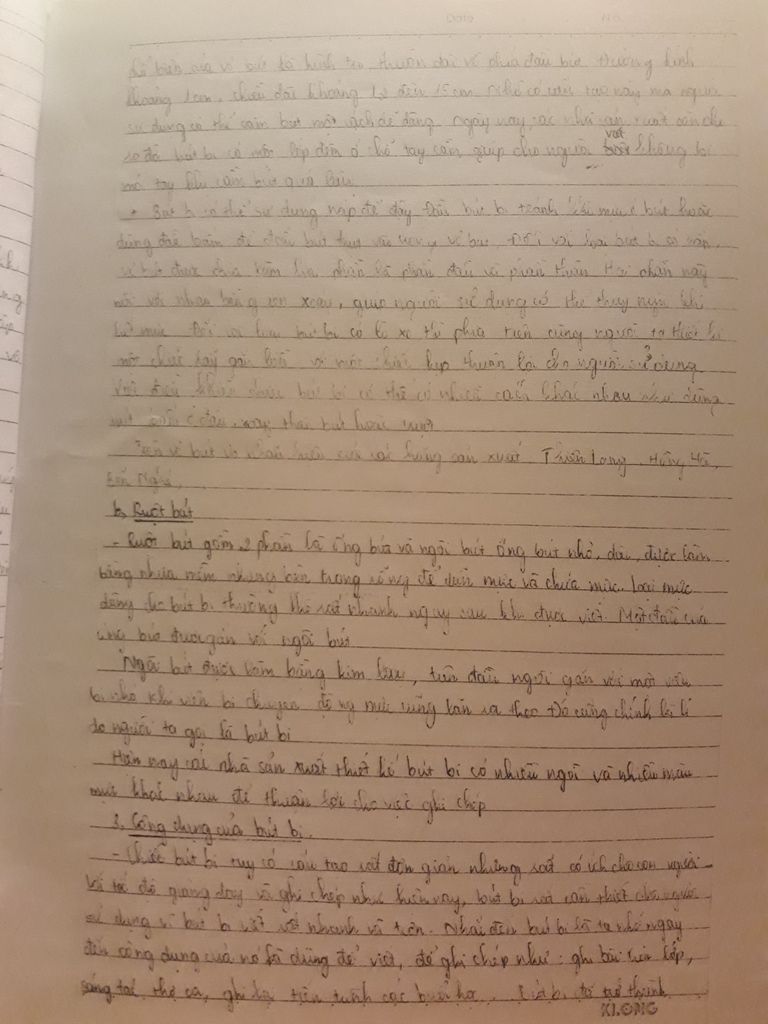 Date No
phổ biến của vỏ bút là hình trụ, thuôn dài về phía đầu bút. Đường kính
khoảng 1cm, chiều dài khoảng 12 đến 15 cm. Nhờ có cấu tạo này mà người
sử dụng có thể cầm bút một cách dễ dàng. Ngày nay các nhà sản xuất còn cho
ra đời bút bi có một lớp đệm ở chỗ tay cầm, giúp cho người viết không bị
mỏi tay khi cầm bút quá lâu.
+ Bút bi có thể sử dụng nắp để đậy đầu bút bi tránh khi mực bút hoặc
dùng để bấm để đầu bút thụt vào trong vỏ bút. Đối với loại bút bi có nắp,
vỏ bút được chia làm hai phần là phần đầu và phần thân. Hai phần này
nối với nhau bằng ren xoáy, giúp người sử dụng có thể thay ngòi khi
hết mực. Đối với loại bút bi có lò xo thì phía trên cũng người ta thiết kế
một chiếc tay gài kẹp thuận lợi cho người sử dụng
Với điều khiển chiếc bút bi có thể có nhiều cách khác nhau như dùng
nút bấm ở đầu, xoay thân bút hoặc
Trên vỏ bút có nhãn hiệu của các hãng sản xuất Thiên Long, Hồng Hà,
Bến Nghé,
b, Ruột bút
- Ruột bút gồm 2 phần là ống bút và ngòi bút. Ống bút nhỏ, dài, được làm
bằng nhựa mềm nhưng bên trong rỗng để dẫn mực và chứa mực. Loại mực
dùng cho bút bi thường khô rất nhanh ngay sau khi được viết. Một đầu của
ống bút được gắn với ngòi bút
Ngòi bút được làm bằng kim loại, trên đầu ngòi gắn với một viên
bi nhỏ khi viên bi chuyển động mực cũng lăn ra theo. Đó cũng chính là lí
do người ta gọi là bút bi
Hiện nay các nhà sản xuất thiết kế bút bi có nhiều ngòi và nhiều màu
mực khác nhau để thuận lợi cho việc ghi chép
3. Công dụng của bút bi.
- Chiếc bút bi tuy có cấu tạo rất đơn giản nhưng rất có ích cho con người
Với tốc độ giảng dạy và ghi chép như hiện nay, bút bi rất cần thiết cho người
sử dụng vì bút bi viết rất nhanh và trơn. Nhắc đến bút bi là ta nhớ ngay
đến công dụng của nó là dùng để viết, để ghi chép như: ghi bài trên lớp,
sáng tác thơ ca, ghi lại tiến trình các buổi họp. Bút bi đã trở thành
KLONG